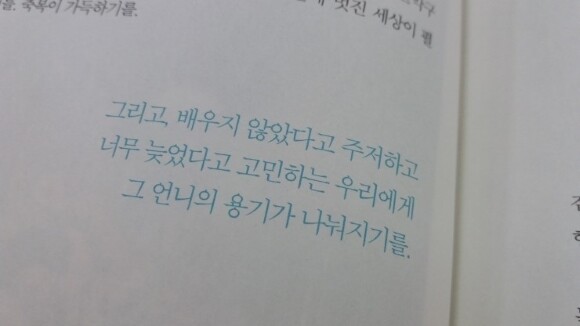 축복이 가득하기를.
멋진 세상이 펼
그리고, 배우지 않았다고 주저하고
너무 늦었다고 고민하는 우리에게
그 언니의 용기가 나눠지기를.